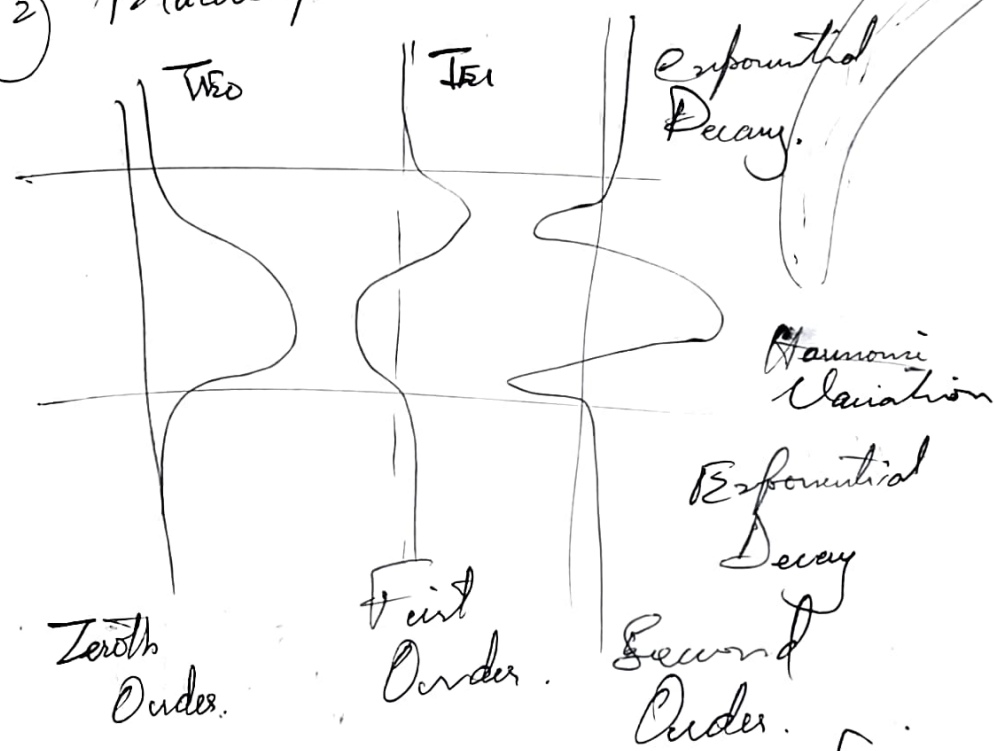 2)
TE0
TE1
Exponential
Decay.
Harmonic
Variation
Exponential
Decay
Zeroth
Order.
First
Order.
Second
Order.